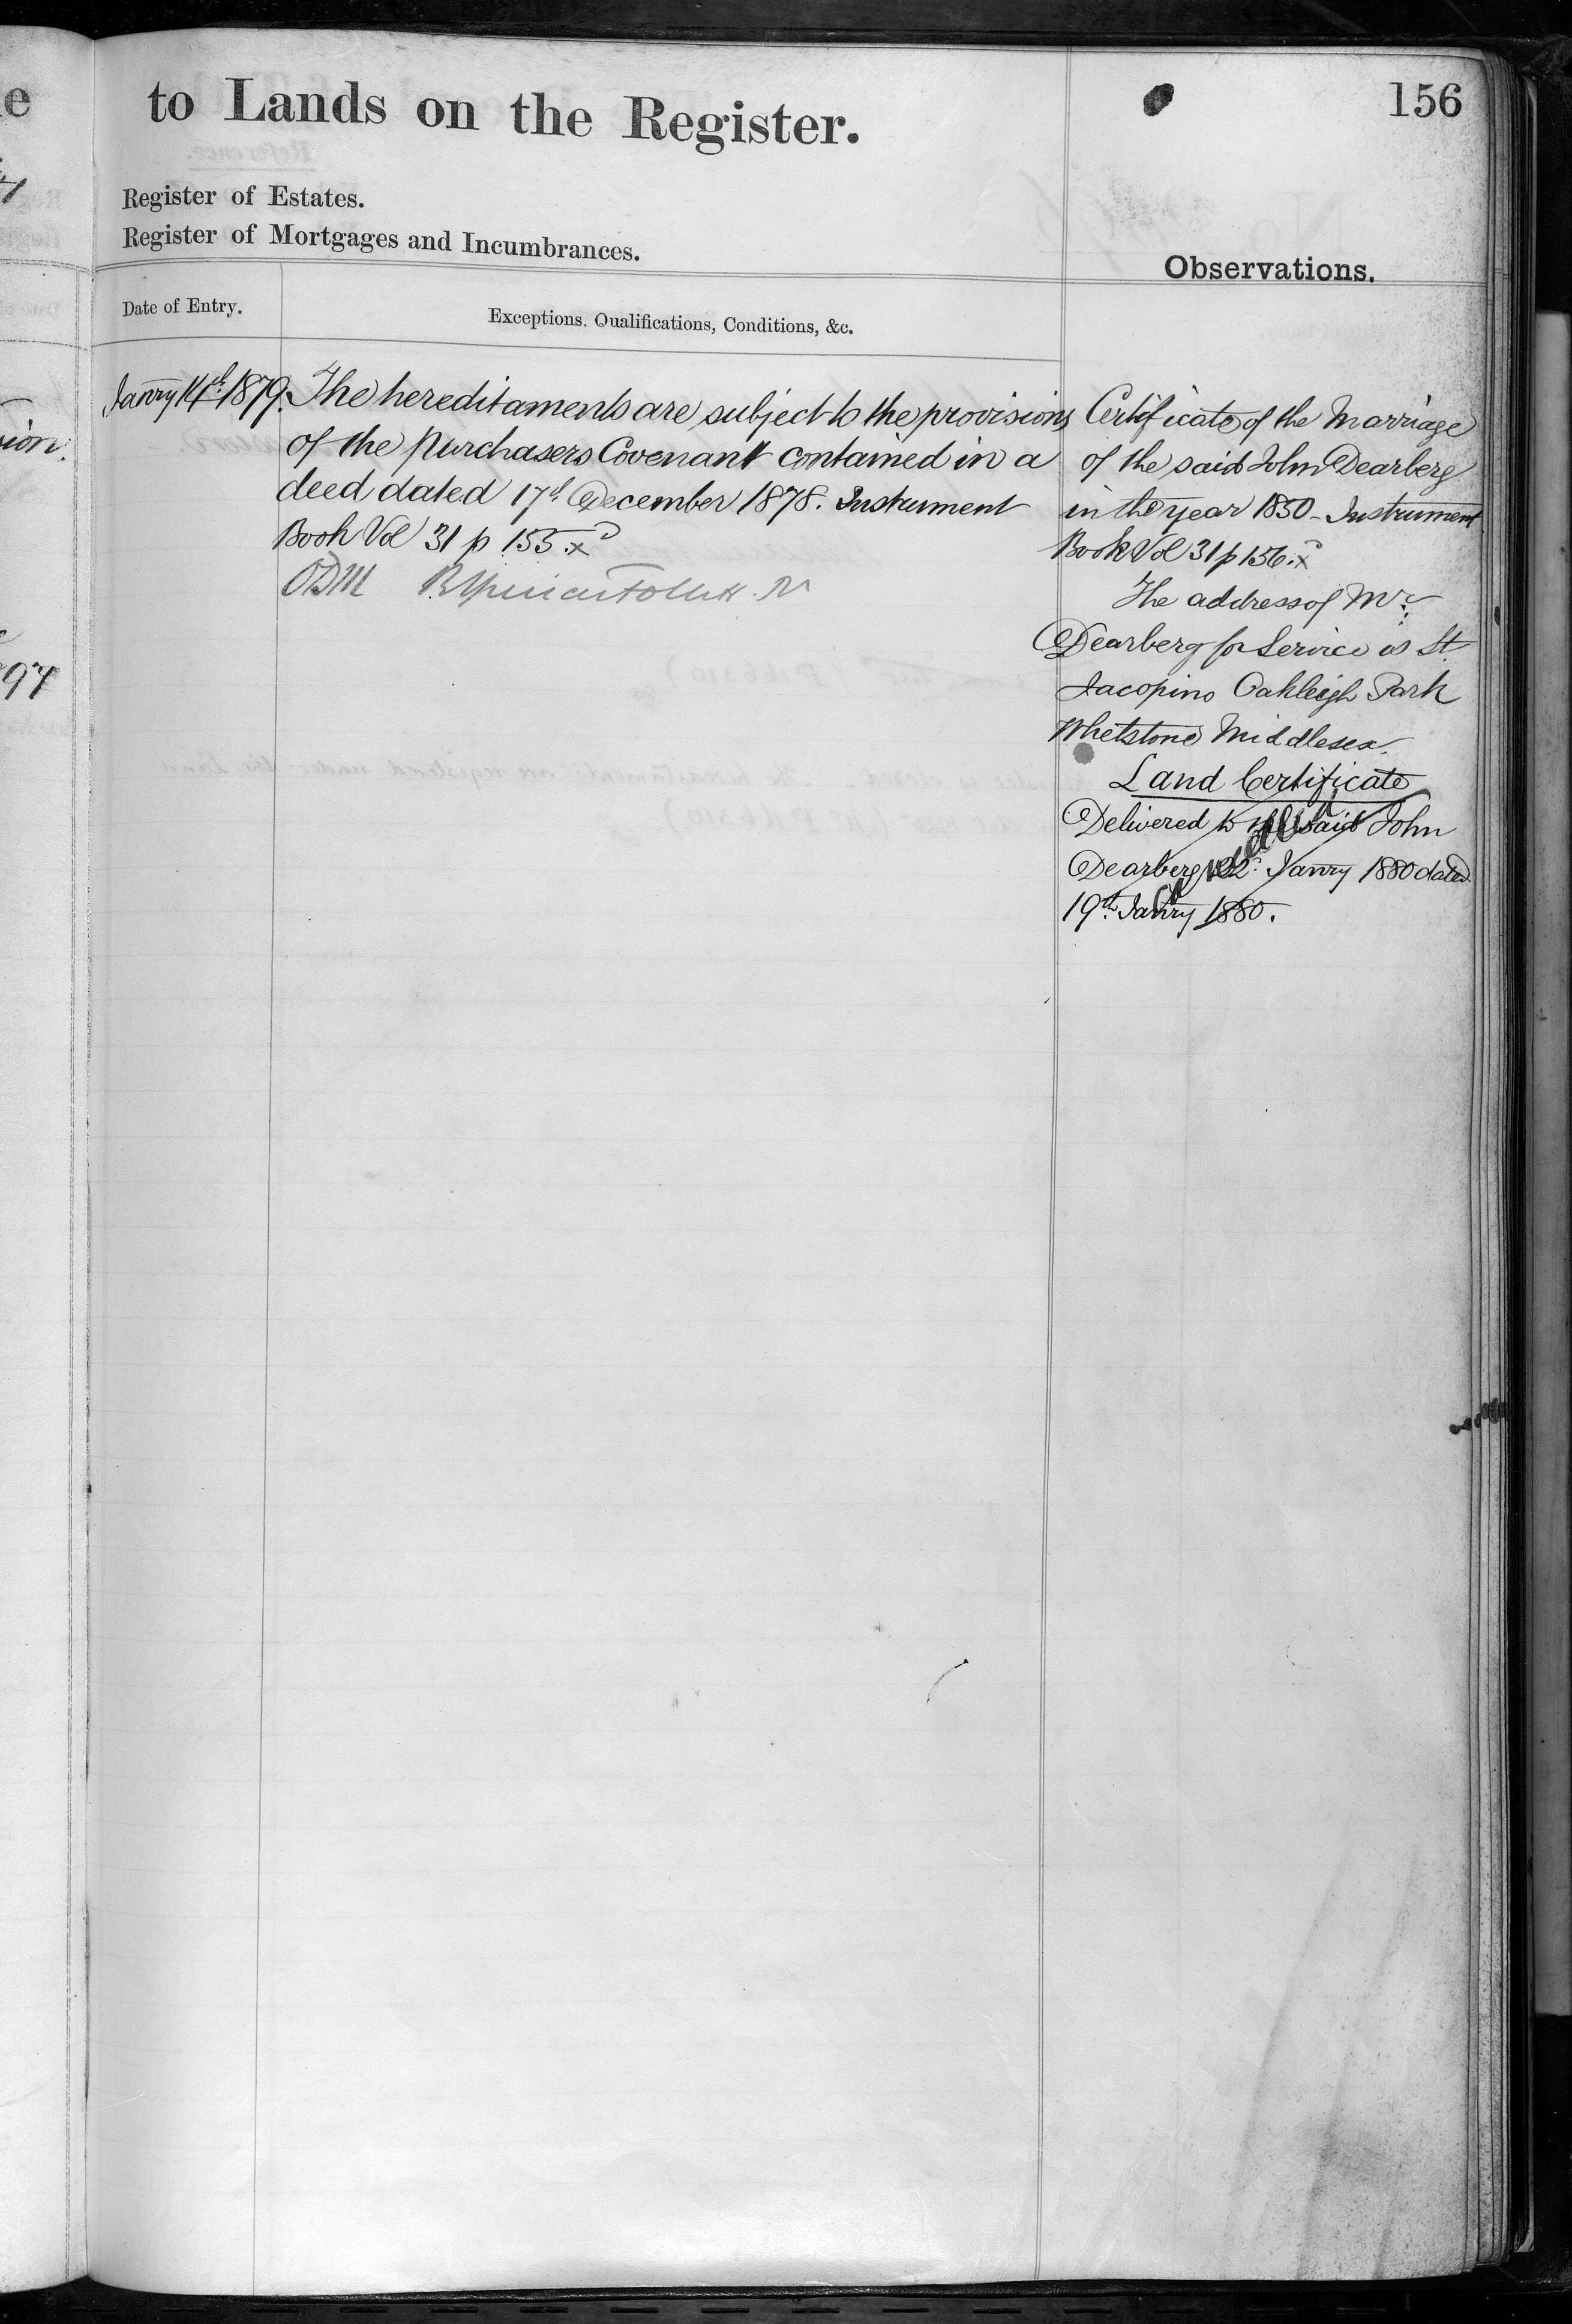 156
to Lands on the Register.
Register of Estates.
Register of Mortgages and Incumbrances.
Observations.
Date of Entry.
Exceptions. Qualifications, Conditions, &c.
Janry 14th 1879. The hereditaments are subject to the provisions
of the purchasers Covenant contained in a
deed dated 17th December 1878. Instrument
Book Vol 31 p 155.x
Certificate of the Marriage
of the said John Dearberg
in the year 1850 - Instrument
Book Vol 31 p 156.x
The address of Mr.
Dearberg for Service is St.
Jacopino Oakleigh Park
Whetstone Middlesex.
Land Certificate
Delivered to the said John
Dearberg 22d Janry 1880 dated
19th Janry 1880.